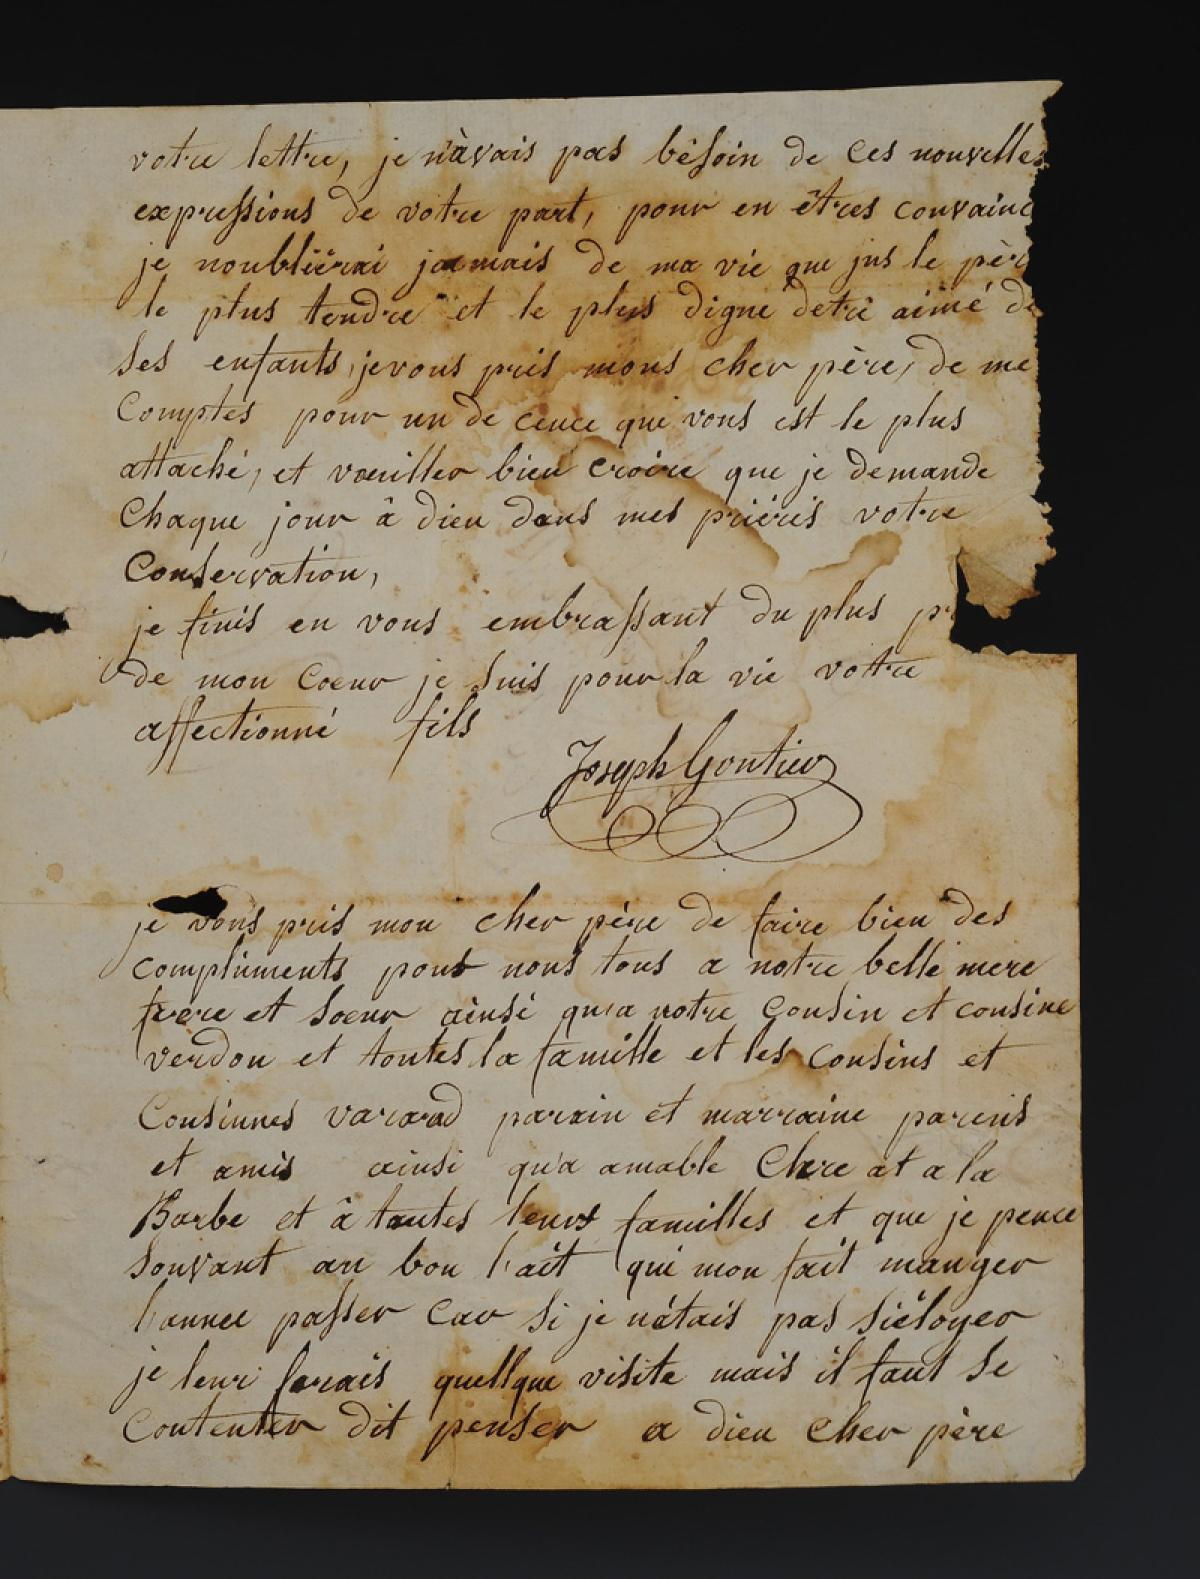 votre lettre, je n'àvais pas bêsoin de ces nouvelles
expressions de votre part, pour en êtres convainc
je noublierai jamais de ma vie que jus le pèr
le plus tendre et le plus digne detre aimé de
ses enfants, je vous pris mons cher père, de me
Comptes pour un de ceuce qui vous est le plus
attaché, et vœuiller bien croire que je demande
Chaque jour â dieu dans mes prièris votre
Conservation,
je finis en vous embrassant du plus pr
de mon Coeur je suis pour la vie votre
affectionné fils
Joseph Gontier
je vous pris mon cher père de faire bien des
compliments pour nous tous a notre belle mere
frere et soeur ainsi qu'a notre Cousin et cousine
verdon et toutes la famille et les Cousins et
Cousinnes varard parain et marraine parens
et amis ainsi qu'a amable Chre at a la
Barbe et â toutes leurs familles et que je pence
souvant au bon lait qui mon fait manger
lannee passer car si je nétais pas siéloyer
je leur ferais quellque visite mais il faut se
Contenter dit penser a dieu cher père